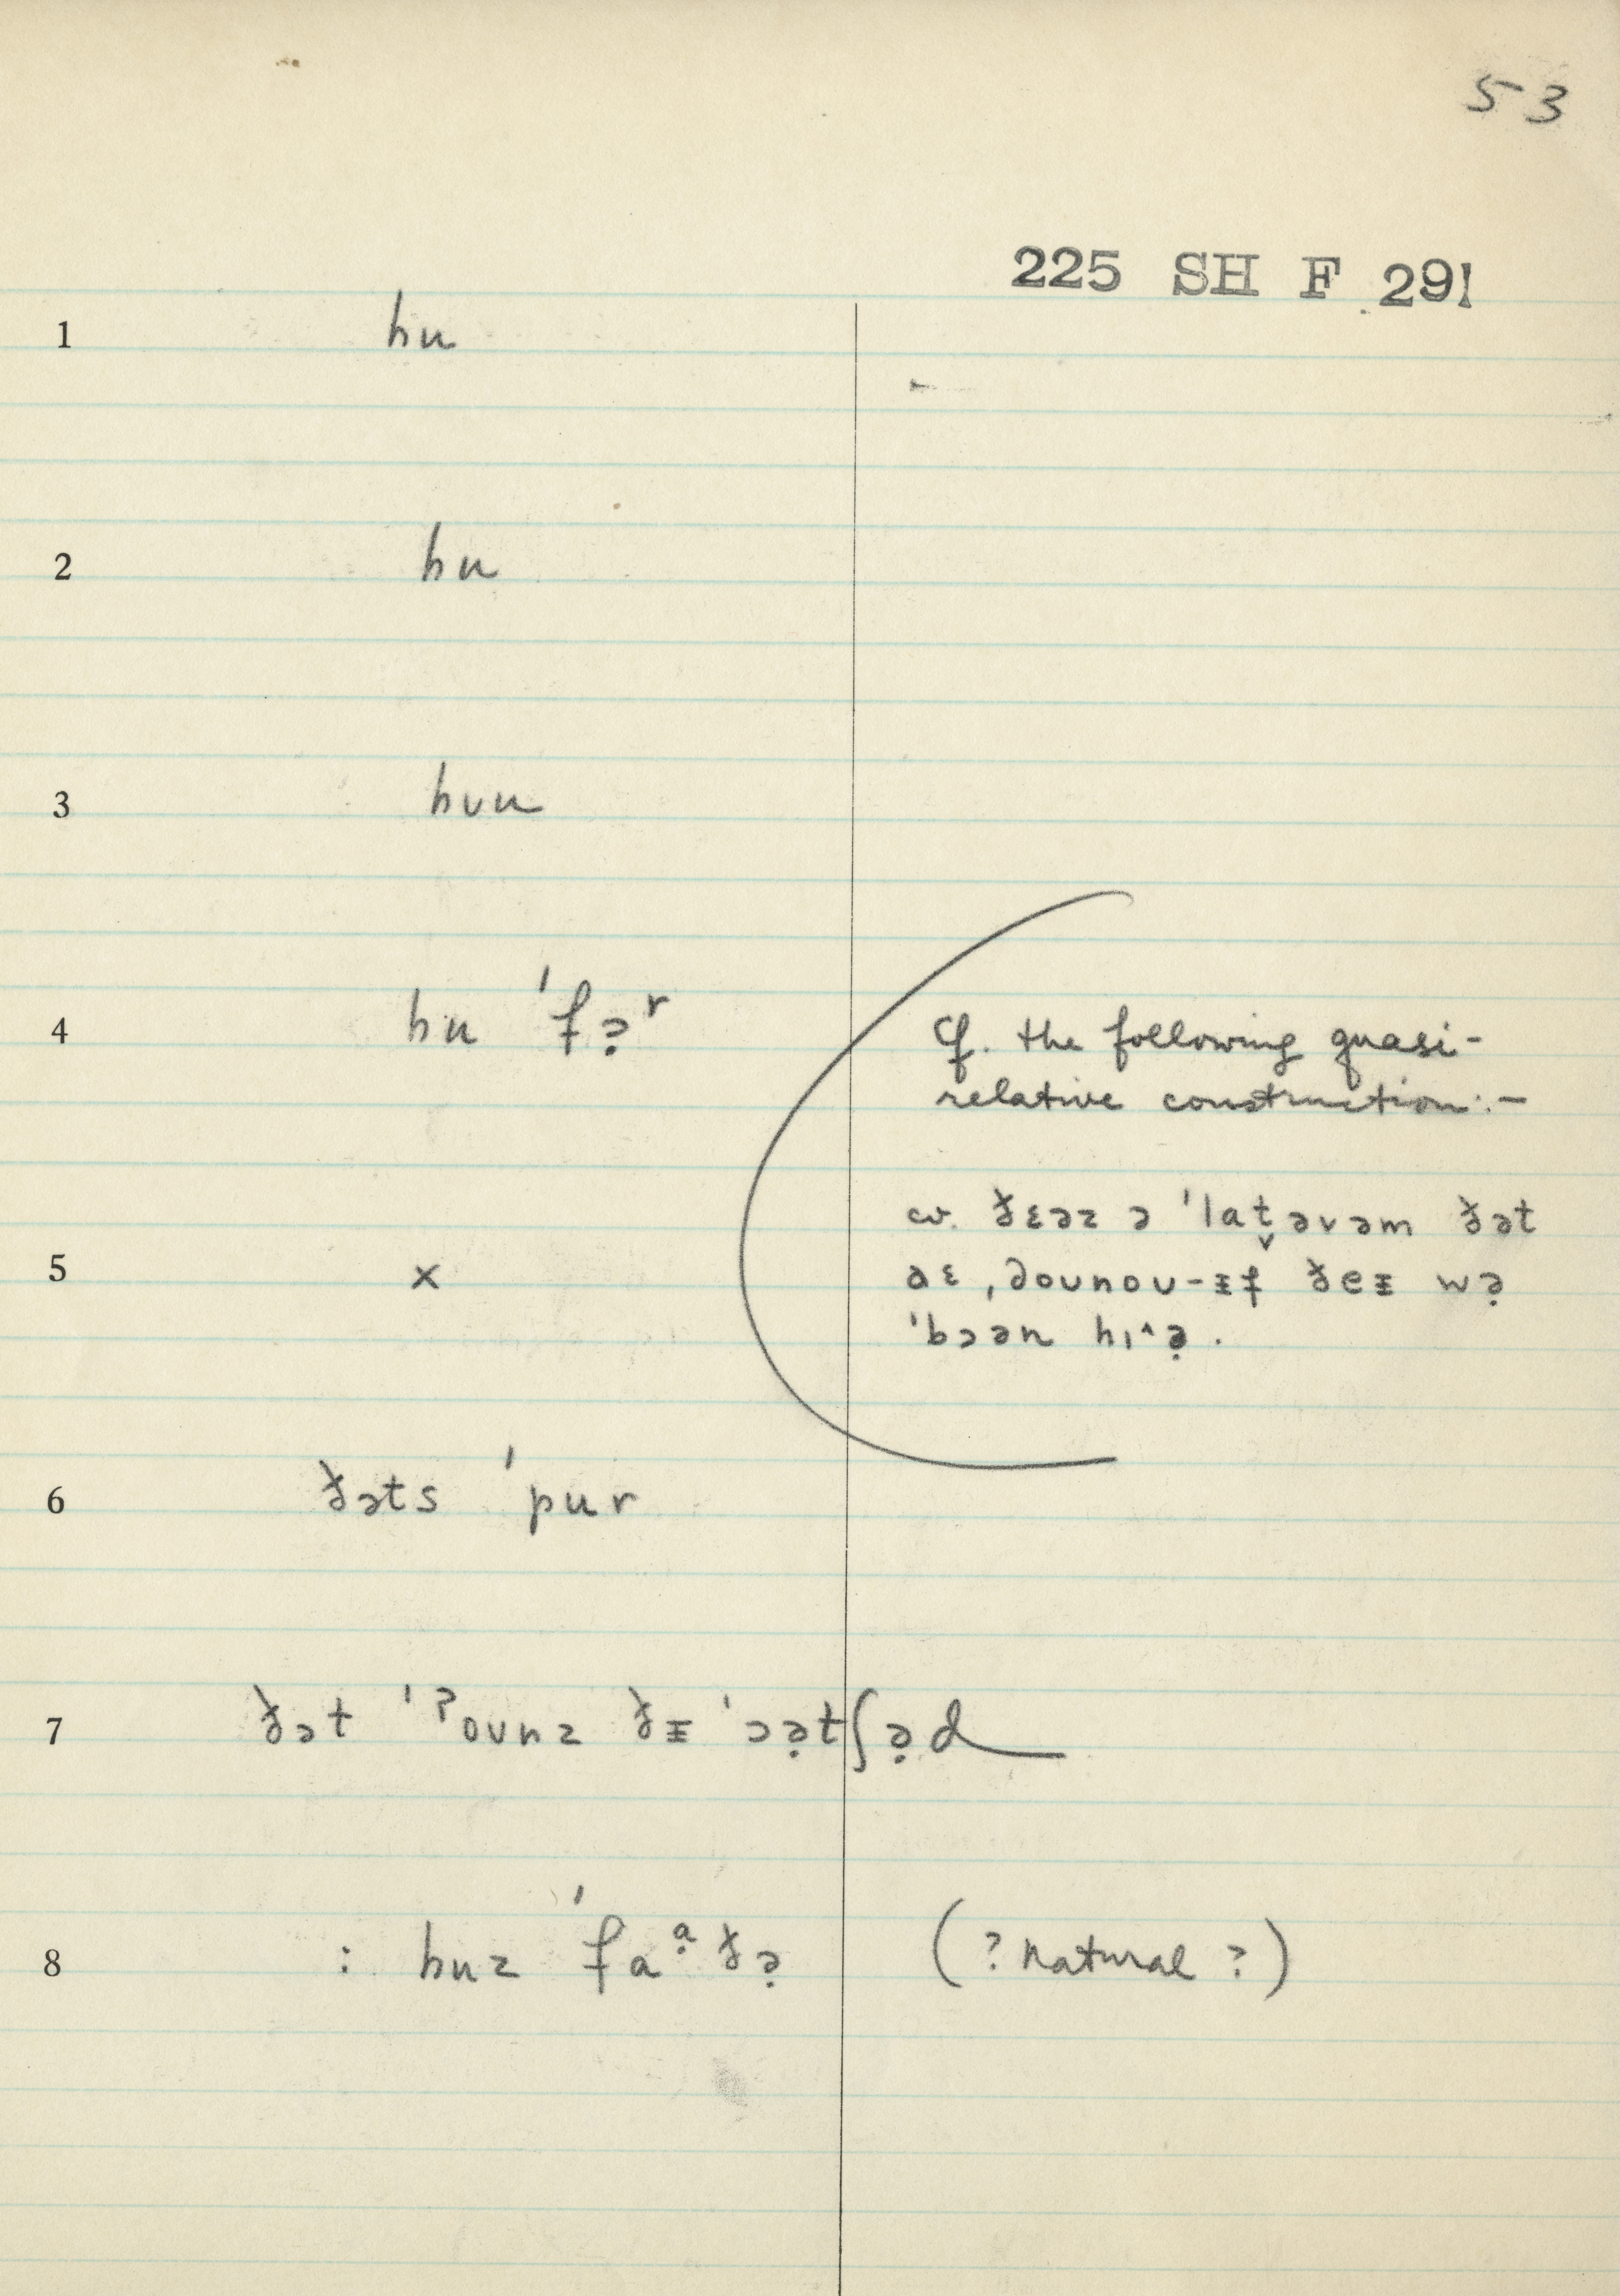 53
225 SH F 291
1 hu
2 hu
3 hʊu
4 hu ˈfə̣ʳ
Cf. the following quasi-
relative construction:-
cv. ðɛəz ə ˈlat̬əvəm ðət
5 x
aɛ ˌdoʊnoʊ-ɪf ðeɪ wə̣
ˈbɔən hɪ^ə̣.
6 ðəts ˈpur
7 ðət ˈʔoʊnz ðɪ ˈɔə̣tʃə̣d
8 : huz ˈfaᵃ̣ðə̣ (? natural ?)